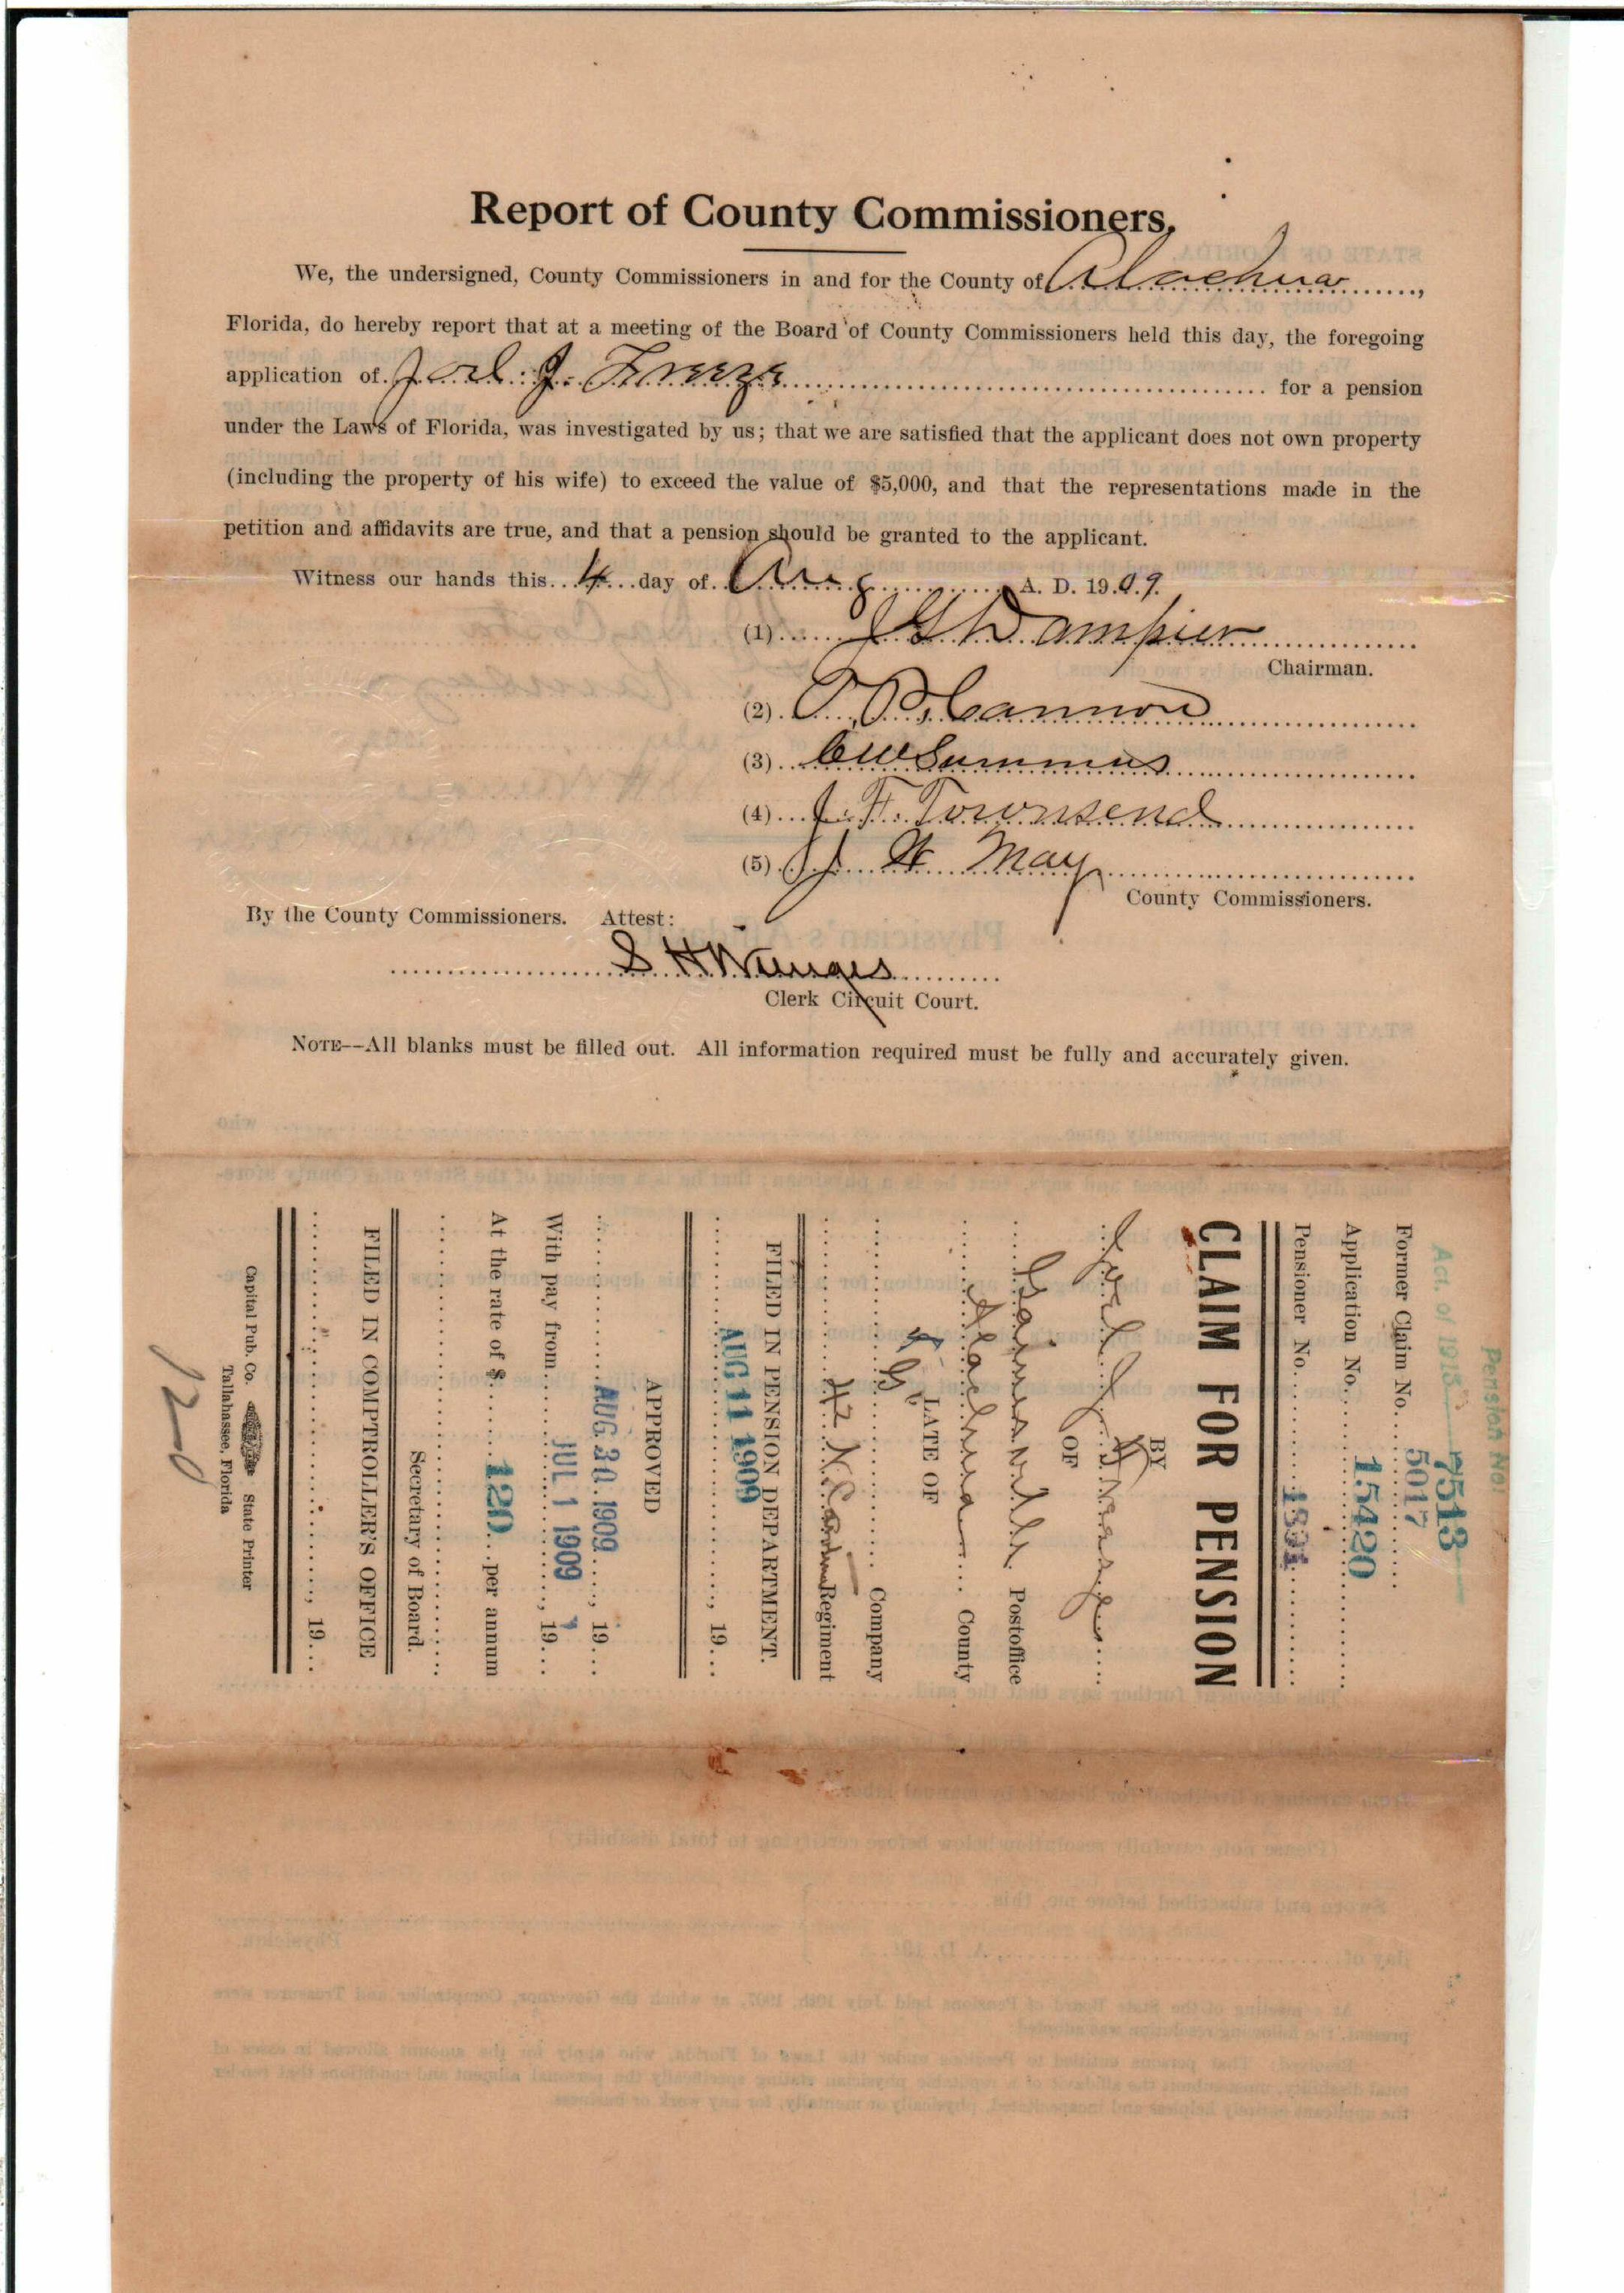 Report of County Commissioners.
We, the undersigned, County Commissioners in and for the County of Alachua,
Florida, do hereby report that at a meeting of the Board of County Commissioners held this day, the foregoing
application of J. for a pension
under the Laws of Florida, was investigated by us; that we are satisfied that the applicant does not own property
(including the property of his wife) to exceed the value of $5,000, and that the representations made in the
petition and affidavits are true, and that a pension should be granted to the applicant.
Witness our hands this 4 day of Aug A. D. 1909.
(1) J G Dampier
Chairman.
(2) P. Cannon
(3) CW Summers
(4) J. F. Townsend
(5) J. H May
County Commissioners.
By the County Commissioners. Attest:
S H Wienges
Clerk Circuit Court.
NOTE--All blanks must be filled out. All information required must be fully and accurately given.
Pension No.
Act. of 1913 7513
Former Claim No. 5017
Application No. 15420
Pensioner No.
CLAIM FOR PENSION
BY
J.
OF
Gainesville Postoffice
Alachua County
LATE OF
G Company
42 N. Carolina Regiment
FILED IN PENSION DEPARTMENT.
AUG 11 1909, 19
APPROVED
AUG. 30. 1909, 19
With pay from JUL 1 1909, 19
At the rate of $ 120 per annum
Secretary of Board.
FILED IN COMPTROLLER'S OFFICE
, 19
Capital Pub. Co. State Printer
Tallahassee, Florida
120